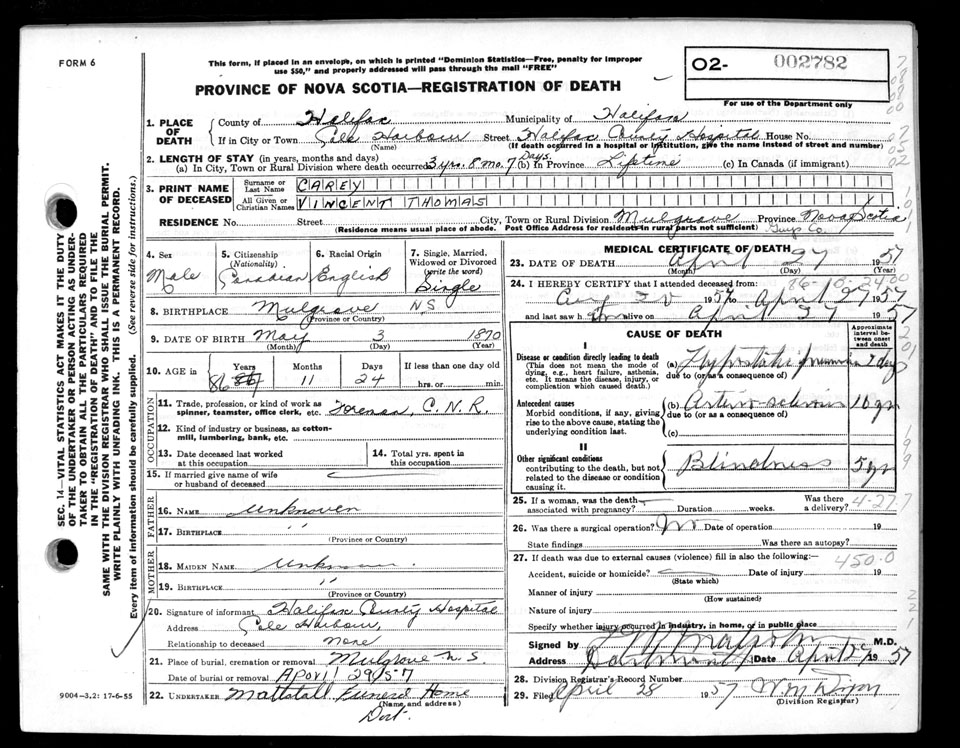 FORM 6
This form, if placed in an envelope, on which is printed "Dominion Statistics—Free, penalty for improper
use $50," and properly addressed will pass through the mail "FREE"
PROVINCE OF NOVA SCOTIA—REGISTRATION OF DEATH
O2- 002782
For use of the Department only
1. PLACE OF DEATH County of Halifax Municipality of Halifax
If in City or Town Cole Harbour Street Halifax County Hospital House No.
(Name) (If death occurred in a hospital or institution, give the name instead of street and number)
2. LENGTH OF STAY (in years, months and days)
(a) In City, Town or Rural Division where death occurred 3 yrs. 8 mo. 7 Days. (b) In Province Liftime (c) In Canada (if immigrant)
3. PRINT NAME OF DECEASED Surname or Last Name CAREY
All Given or Christian Names VINCENT THOMAS
RESIDENCE No. Street City, Town or Rural Division Mulgrave Province Nova Scotia
(Residence means usual place of abode. Post Office Address for residents in rural parts not sufficient) Guys Co.
4. Sex Male
5. Citizenship (Nationality) Canadian
6. Racial Origin English
7. Single, Married, Widowed or Divorced (write the word) Single
8. BIRTHPLACE Mulgrave N S
(Province or Country)
9. DATE OF BIRTH May 3 1870
(Month) (Day) (Year)
10. AGE Years Months Days If less than one day old
86 11 24 hrs. or min.
OCCUPATION
11. Trade, profession, or kind of work as spinner, teamster, office clerk, etc. Foreman, C.N.R.
12. Kind of industry or business, as cotton-mill, lumbering, bank, etc.
13. Date deceased last worked at this occupation
14. Total yrs. spent in this occupation
15. If married give name of wife or husband of deceased
FATHER
16. NAME Unknown
17. BIRTHPLACE "
(Province or Country)
MOTHER
18. MAIDEN NAME Unknown.
19. BIRTHPLACE "
(Province or Country)
20. Signature of informant Halifax County Hospital
Address Cole Harbour,
Relationship to deceased None
21. Place of burial, cremation or removal Mulgrave N.S.
Date of burial or removal April 29/57
22. UNDERTAKER Mattatall Funeral Home
(Name and address)
Dart.
MEDICAL CERTIFICATE OF DEATH
23. DATE OF DEATH April 27 1957
(Month) (Day) (Year)
24. I HEREBY CERTIFY that I attended deceased from:
Aug 1957 to April 27 1957
and last saw him alive on April 27 1957
CAUSE OF DEATH
Approximate interval between onset and death
I
Disease or condition directly leading to death
(This does not mean the mode of dying, e.g., heart failure, asthenia, etc. It means the disease, injury, or complication which caused death.)
(a) Hypostatic pneumonia
due to (or as a consequence of)
Antecedent causes
Morbid conditions, if any, giving rise to the above cause, stating the underlying condition last.
(b) Arterio-sclerosis 10 yr
due to (or as a consequence of)
(c)
II
Other significant conditions
contributing to the death, but not related to the disease or condition causing it.
Blindness 5 yr
25. If a woman, was the death associated with pregnancy? Duration weeks. Was there a delivery? 4-27
26. Was there a surgical operation? No Date of operation 19
State findings Was there an autopsy?
27. If death was due to external causes (violence) fill in also the following:— 450.0
Accident, suicide or homicide? Date of injury 19
(State which)
Manner of injury
(How sustained)
Nature of injury
Specify whether injury occurred in industry, in home, or in public place
Signed by M.D.
Address Dartmouth Date April 1957
28. Division Registrar's Record Number
29. Filed April 28 1957 W M Dixon
(Division Registrar)
SEC. 14—VITAL STATISTICS ACT MAKES IT THE DUTY
OF THE UNDERTAKER OR PERSON ACTING AS UNDER-
TAKER TO OBTAIN ALL THE PARTICULARS REQUIRED
IN THE "REGISTRATION OF DEATH" AND TO FILE THE
SAME WITH THE DIVISION REGISTRAR WHO SHALL ISSUE THE BURIAL PERMIT.
WRITE PLAINLY WITH UNFADING INK. THIS IS A PERMANENT RECORD.
Every item of information should be carefully supplied. (See reverse side for instructions.)
9004-3,2: 17-6-55